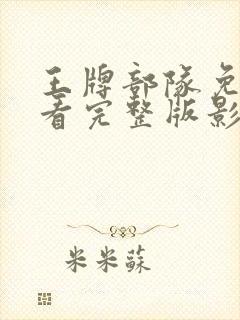 王牌部队免
看完整版影
米米蘇